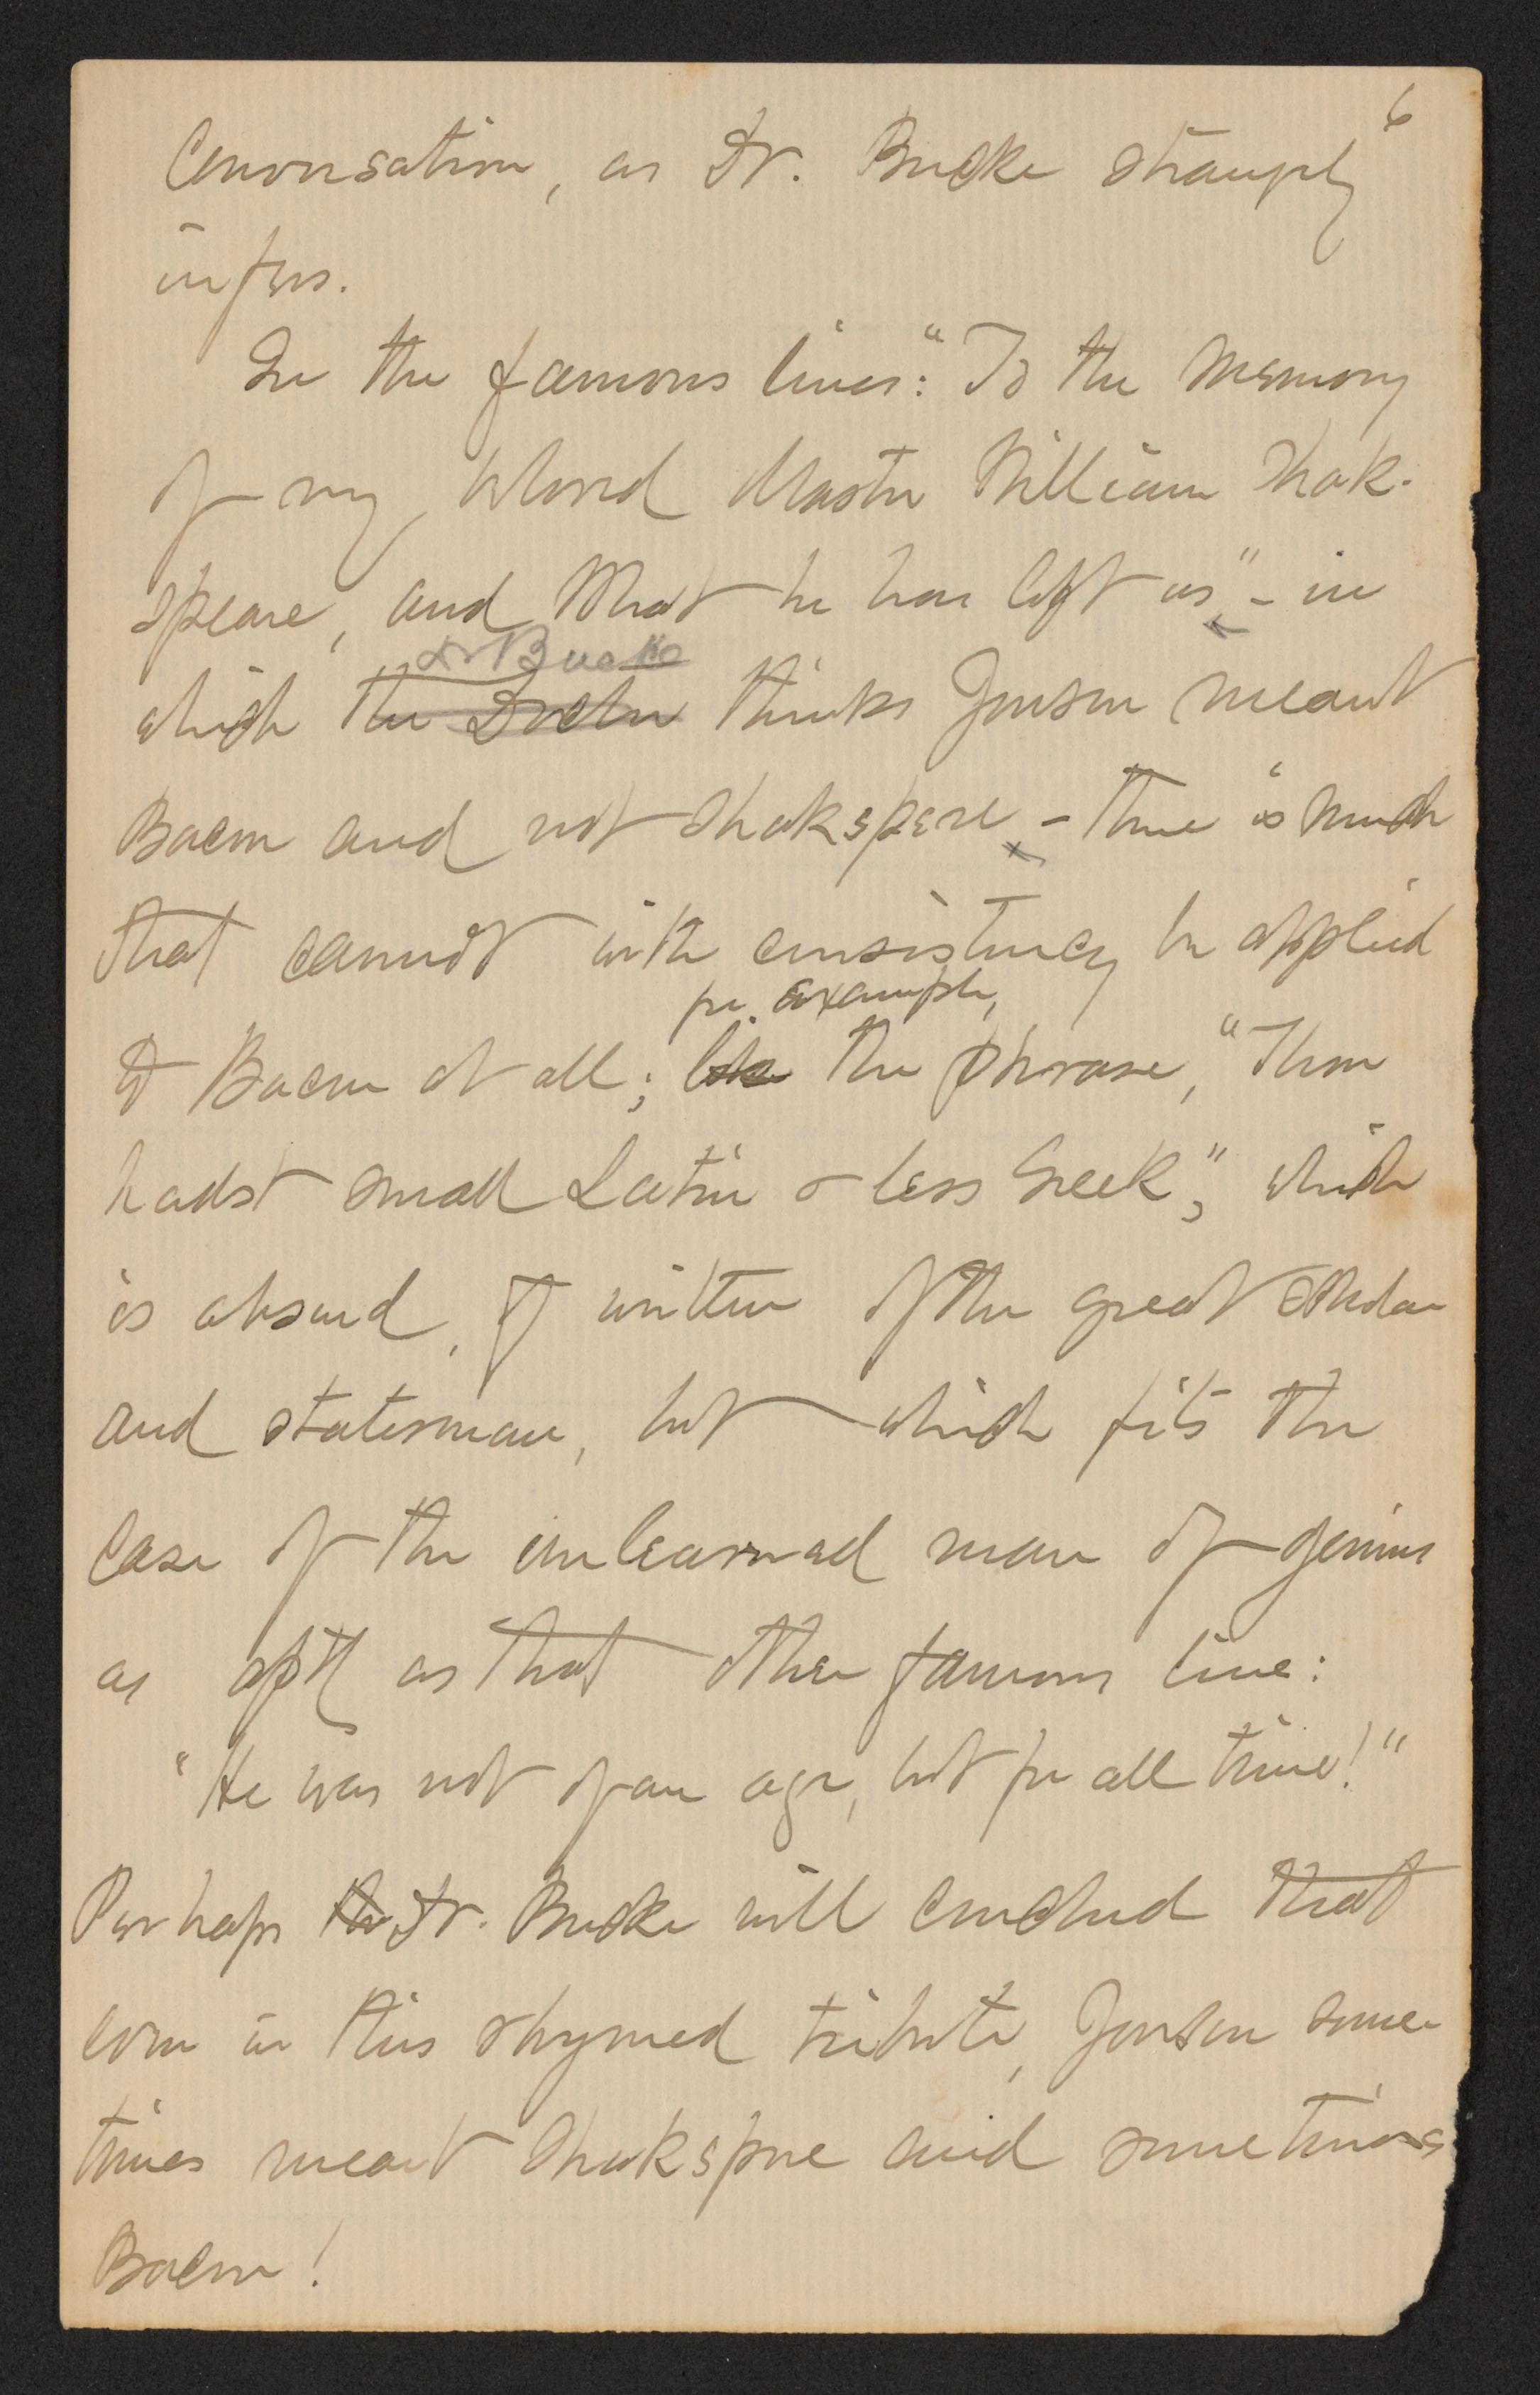 6
Conversation, as Dr. Bucke strangely
infers.
In the famous lines: "To the Memory
of my beloved Master William Shak-
speare, and What he has left us" - in
Dr Bucke
which the Doctor thinks Jonson meant
Bacon and not Shakspere - there is much
that cannot with consistency be applied
for example,
to Bacon at all; like the phrase, "Thou
hadst small Latin & less Greek", which
is absurd, if written of the great scholar
and statesman, but which fits the
case of the unlearned man of genius
as aptly as that other famous line:
"He was not of an age, but for all time!"
Perhaps the Dr. Bucke will conclud that
even in this rhymed tribute, Jonson some-
times meant Shakspere and sometimes
Bacon!